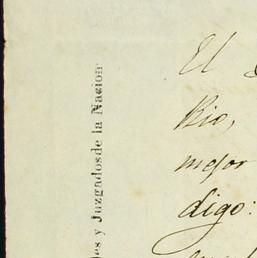 es y Juzgados de la Nacion
El
Rio,
mejor
digo: